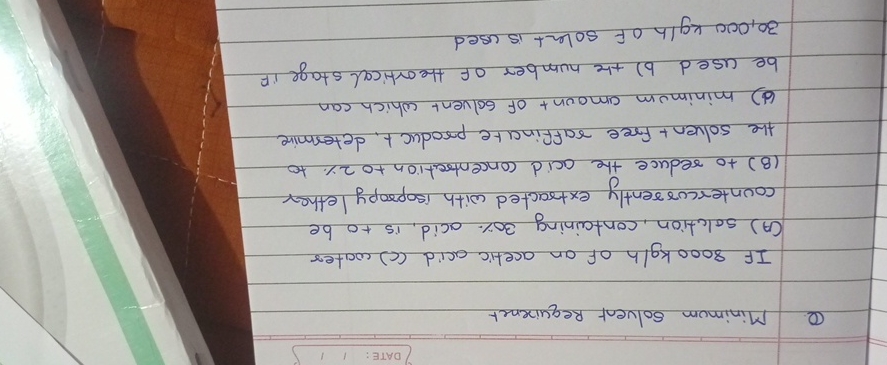 DATE: / /
Q. Minimum Solvent Requirenet
IF 8000 kg/h of an acetic acid (c) water
(A) solction, containing 30% acid, is to be
countercurrently extracted with isopropyl ether
(B) to reduce the acid concentration to 2% to
the solvent free raffincite product, determine
a) minimum amount of solvent which can
be used b) the number of theortical stage if
30,000 kg/h of solent is used